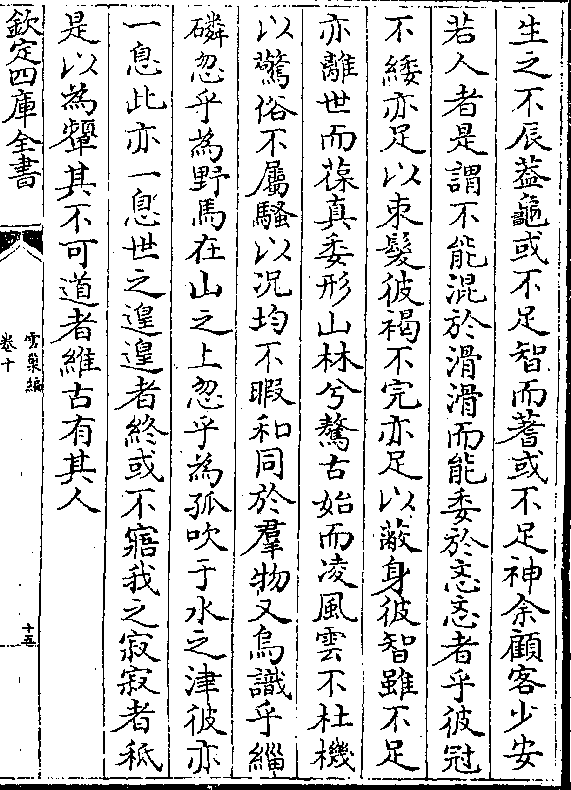 生之不辰葢龜或不足智而蓍或不足神余顧客少安
若人者是謂不能混於滑滑而能委於忞忞者乎彼冠
不緌亦足以束髮彼褐不完亦足以蔽身彼智雖不足
亦離世而葆真委形山林兮驁古始而凌風雲不杜機
以驚俗不屬騷以况均不暇和同於羣物又烏識乎緇
磷忽乎為野馬在山之上忽乎為孤吹于水之津彼亦
一息此亦一息世之遑遑者終或不寤我之寂寂者秪
是以為顰其不可道者維古有其人
欽定四庫全書
雲巢編
卷十
十五